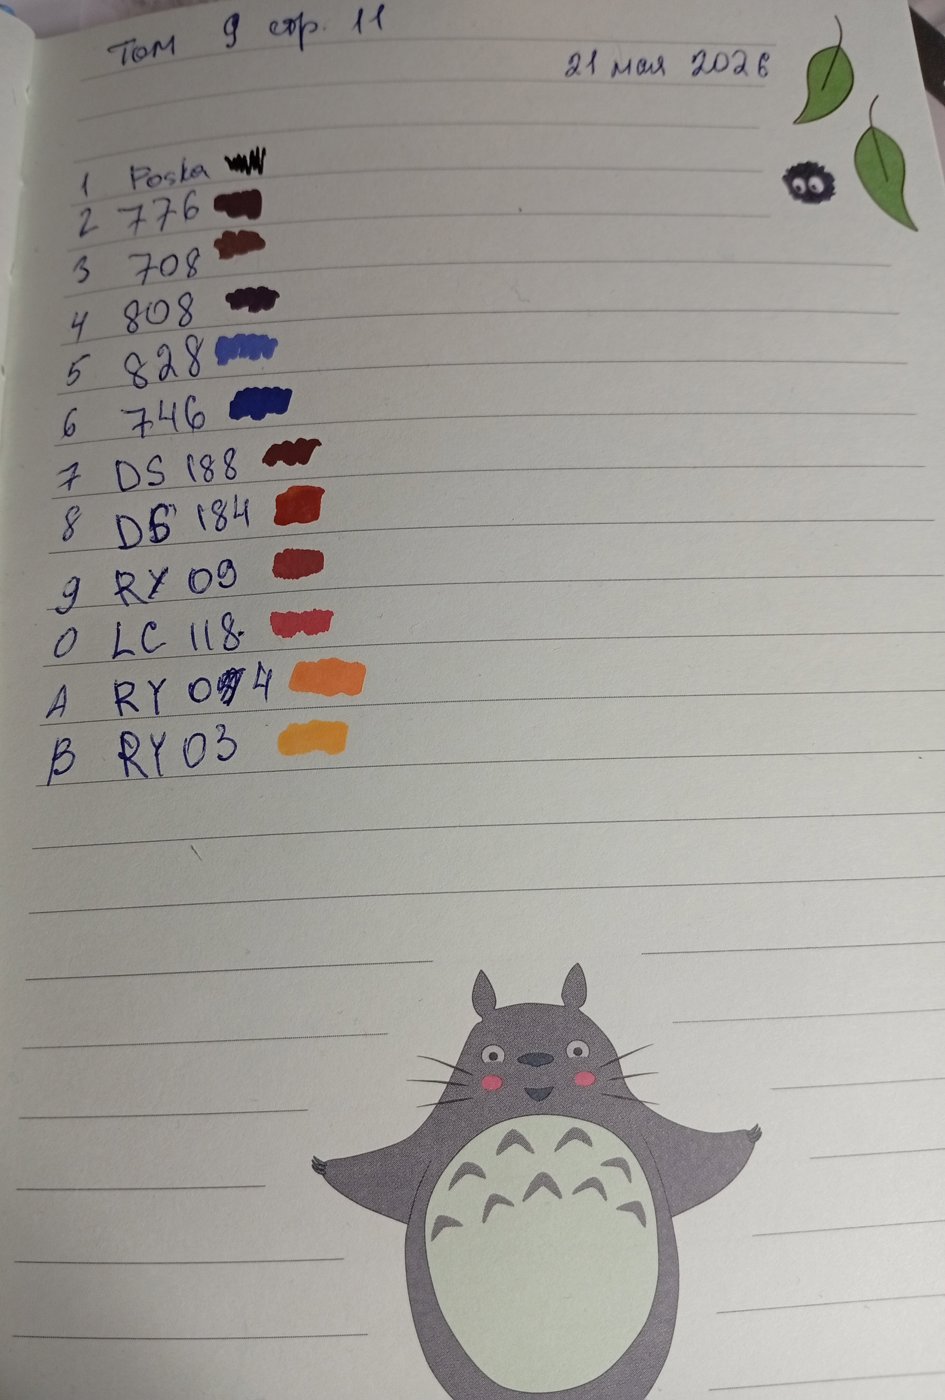 Том 9 стр. 11
21 мая 2026
1 Poska
2 776
3 708
4 808
5 828
6 746
7 DS 188
8 DS 184
9 RY 09
0 LC 118
A RY 04
B RY 03